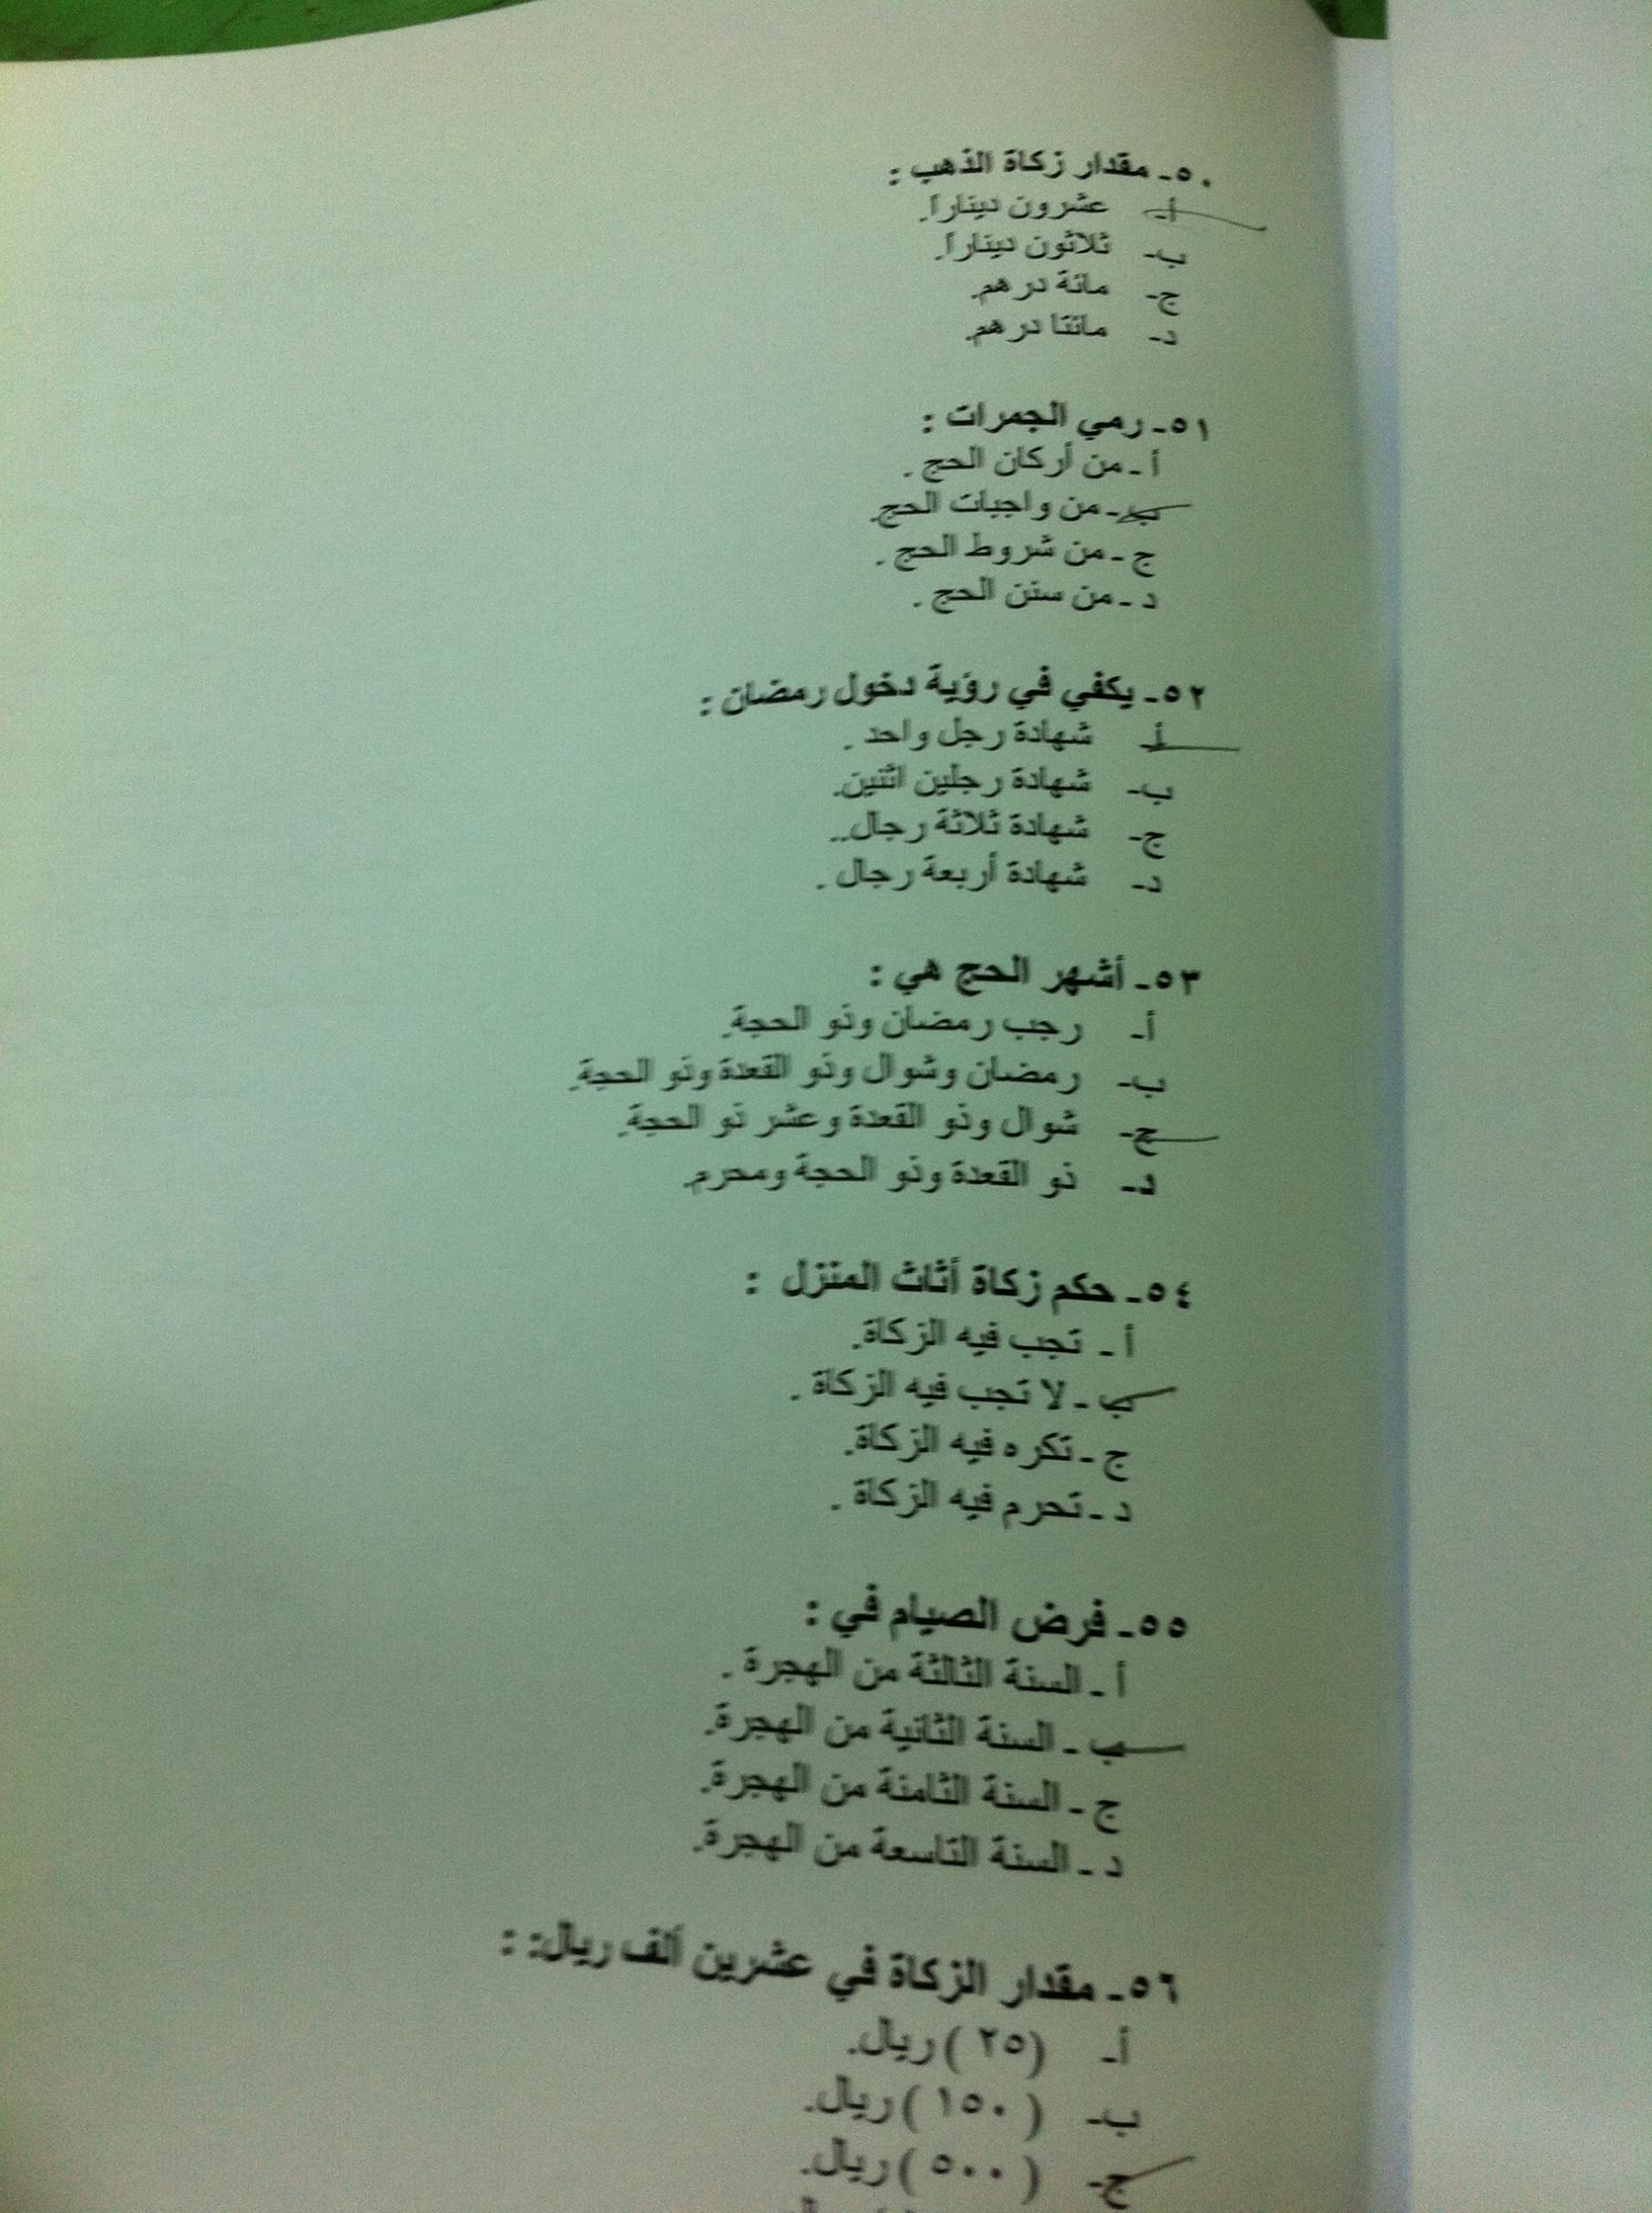 ٥٠- مقدار زكاة الذهب :
أ- عشرون ديناراً.
ب- ثلاثون ديناراً.
ج- مائة درهم.
د- مائتا درهم.
٥١- رمي الجمرات :
أ - من أركان الحج .
ب - من واجبات الحج.
ج - من شروط الحج .
د - من سنن الحج .
٥٢- يكفي في رؤية دخول رمضان :
أ- شهادة رجل واحد .
ب- شهادة رجلين اثنين.
ج- شهادة ثلاثة رجال..
د- شهادة أربعة رجال .
٥٣- أشهر الحج هي :
أ- رجب رمضان وذو الحجة.
ب- رمضان وشوال وذو القعدة وذو الحجة.
ج- شوال وذو القعدة وعشر ذو الحجة.
د- ذو القعدة وذو الحجة ومحرم.
٥٤- حكم زكاة أثاث المنزل :
أ - تجب فيه الزكاة.
ب - لا تجب فيه الزكاة .
ج - تكره فيه الزكاة.
د - تحرم فيه الزكاة .
٥٥- فرض الصيام في :
أ - السنة الثالثة من الهجرة .
ب - السنة الثانية من الهجرة.
ج - السنة الثامنة من الهجرة.
د - السنة التاسعة من الهجرة.
٥٦- مقدار الزكاة في عشرين ألف ريال: :
أ- (٢٥ ) ريال.
ب- ( ١٥٠ ) ريال.
ج- ( ٥٠٠ ) ريال.